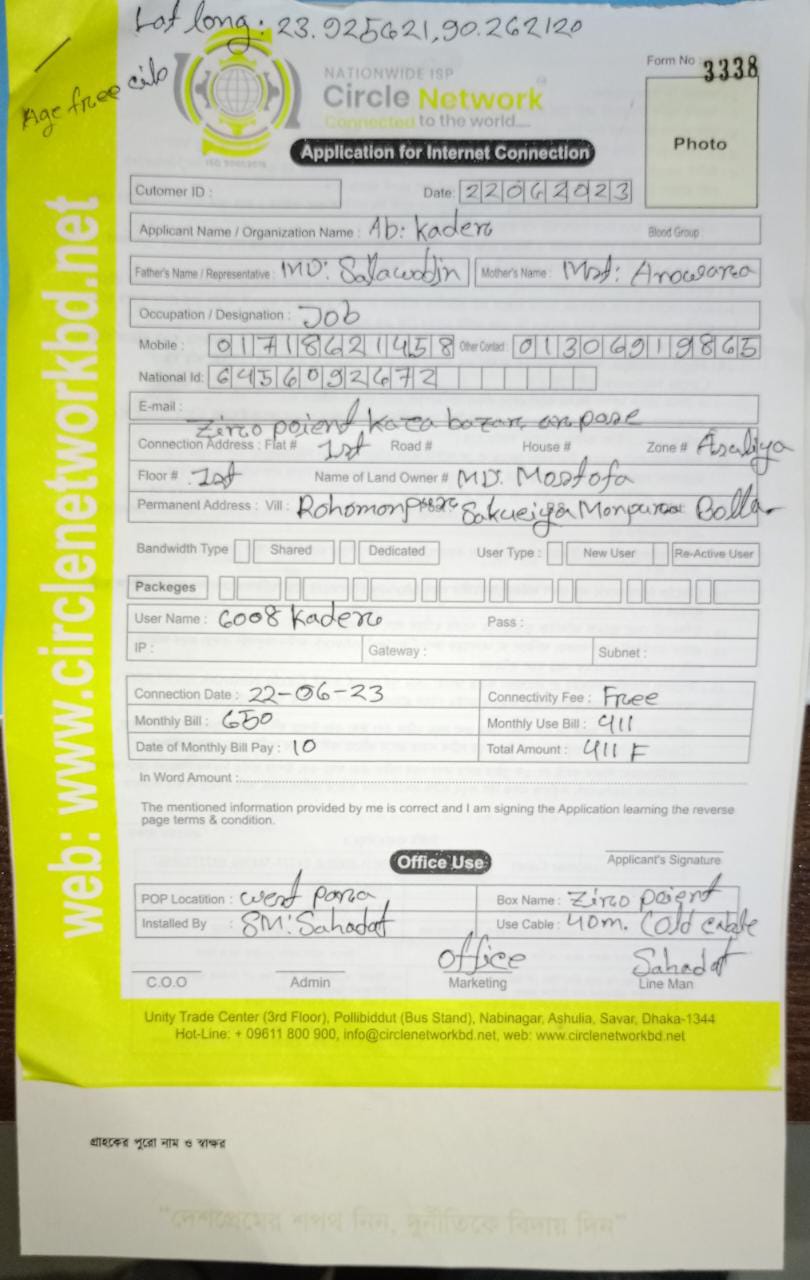 Lat long: 23.925621,90.262120
Age free cib
NATIONWIDE ISP
Circle Network
Connected to the world....
ISO 9001:2015
Form No 3338
Photo
Application for Internet Connection
web: www.circlenetworkbd.net
Cutomer ID :
Date: 22062023
Applicant Name / Organization Name : Ab: Kader
Blood Group :
Father's Name / Representative : MD: Sallawddin
Mother's Name : Mst: Anowara
Occupation / Designation : Job
Mobile : 01718621458 Other Contact : 01306919865
National Id: 6456092672
E-mail :
Zirco poient kaca bazar, on pase
Connection Address : Flat # 1st Road # House # Zone # Asuliya
Floor # 1st Name of Land Owner # MD. Mostofa
Permanent Address : Vill : Rohomonpur Sakueiya Monpura Bolla
Bandwidth Type Shared Dedicated User Type : New User Re-Active User
Packeges
User Name : 6008 Kader Pass :
IP : Gateway : Subnet :
Connection Date : 22-06-23 Connectivity Fee : Free
Monthly Bill : 650 Monthly Use Bill : 411
Date of Monthly Bill Pay : 10 Total Amount : 411 F
In Word Amount :
The mentioned information provided by me is correct and I am signing the Application learning the reverse
page terms & condition.
Applicant's Signature
Office Use
POP Locatition : west para Box Name : Zirco poient
Installed By : SM: Sahadat Use Cable : 40m. Cold cable
office Sahadat
C.O.O Admin Marketing Line Man
Unity Trade Center (3rd Floor), Pollibiddut (Bus Stand), Nabinagar, Ashulia, Savar, Dhaka-1344
Hot-Line: + 09611 800 900, info@circlenetworkbd.net, web: www.circlenetworkbd.net
গ্রাহকের পুরো নাম ও স্বাক্ষর
"দেশপ্রেমের শপথ নিন, দুর্নীতিকে বিদায় দিন"